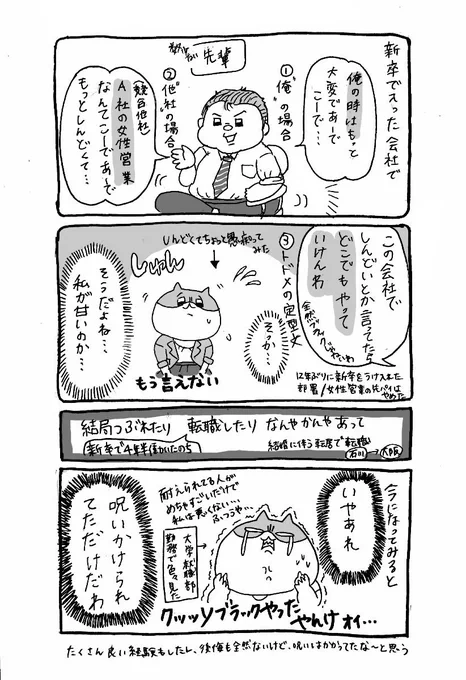 新卒で入った会社で
先輩
①"俺"の場合
俺の時はもっと
大変であーで
こーで…
②"他社"の場合
(競合他社)
A社の女性営業
なんてこーであーで
もっとしんどくて…
この会社で
しんどいとか言ってたら
どこでもやって
いけんわ
全然ブラックじゃないわ
③トドメの定型文
しんどくてちょっと愚痴って
みた
しゅん
そっか…
そうだよね…
私が甘いのか…
もう言えない
12年ぶりに新卒をうけ入れた
部署/女性営業の先パイは
やめた
結局つぶれたり 転職したり なんやかんやあって
新卒で4年半働いたのち
結婚に伴う転居で転職
石川→大阪
今になってみると
いやあれ
耐えられてる人が
めちゃすごいだけで
私は悪くない…
ふつうや…
大学就職部
勤務で色々見た
呪いかけられ
てただけだわ
クッッソブラックやった
やんけオイ…
たくさん良い経験もしたし、後悔も全然ないけど、呪いはかかってたな〜と思う